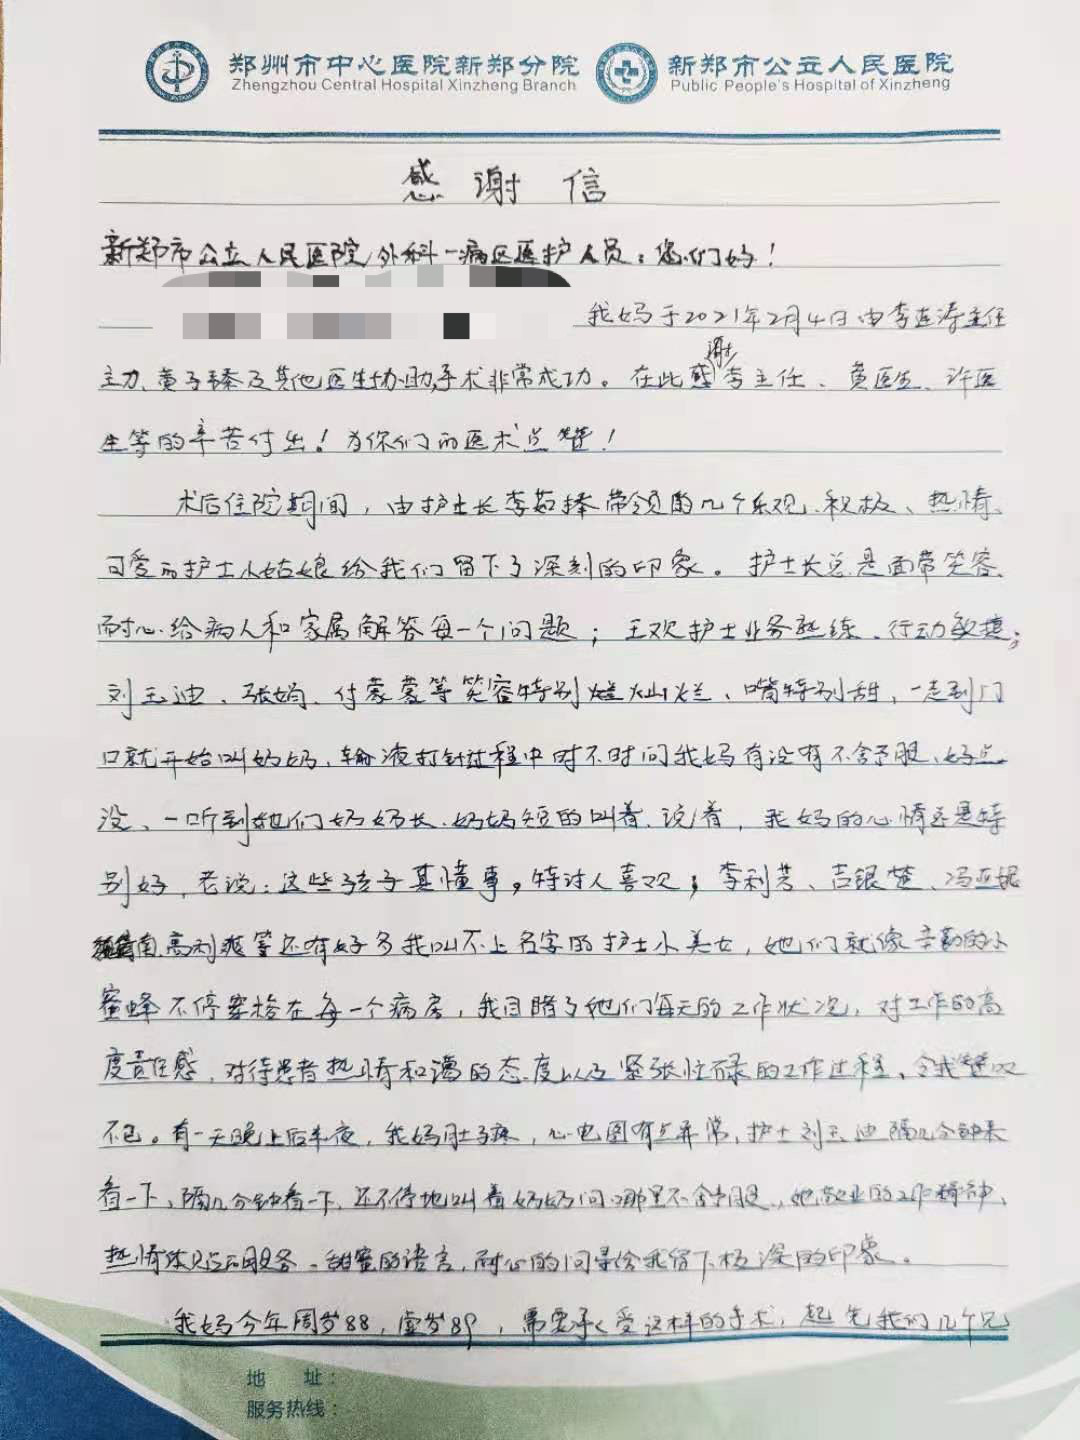 郑州市中心医院新郑分院 新郑市公立人民医院
Zhengzhou Central Hospital Xinzheng Branch Public People's Hospital of Xinzheng
感谢信
新郑市公立人民医院外科一病区医护人员：您们好！
我妈于2021年2月4日由李连涛主任
主刀、黄子臻及其他医生协助手术非常成功。在此感谢李主任、黄医生、许医
生等的辛苦付出！为你们的医术点赞！
术后住院期间，由护士长李茹择带领的几个乐观、积极、热情、
可爱的护士小姑娘给我们留下了深刻的印象。护士长总是面带笑容、
耐心给病人和家属解答每一个问题；王欢护士业务熟练、行动敏捷；
刘玉迪、张娟、付蒙蒙等笑容特别灿烂、嘴特别甜，一走到门
口就开始叫奶奶，输液打针过程中时不时问我妈有没有不舒服、好点
没、一听到她们奶奶长、奶奶短的叫着、说着，我妈的心情还是特
别好，老说：这些孩子真懂事，特讨人喜欢；李利芳、吉银楚、冯亚妮
高利爽等还有好多我叫不上名字的护士小美女，她们就像辛勤的小
蜜蜂不停穿梭在每一个病房，我目睹了她们每天的工作状况，对工作的高
度责任感，对待患者热情和蔼的态度以及紧张忙碌的工作过程，令我赞叹
不已。有一天晚上后半夜，我妈肚疼，心电图有点异常，护士刘玉迪隔几分钟来
看一下、隔几分钟看一下，还不停地叫着奶奶问哪里不舒服，她敬业的工作精神、
热情体贴的服务、甜蜜的语言，耐心的问候给我留下极深的印象。
我妈今年周岁88，虚岁89，需要承受这样的手术，起先我们几个兄
地 址：
服务热线：